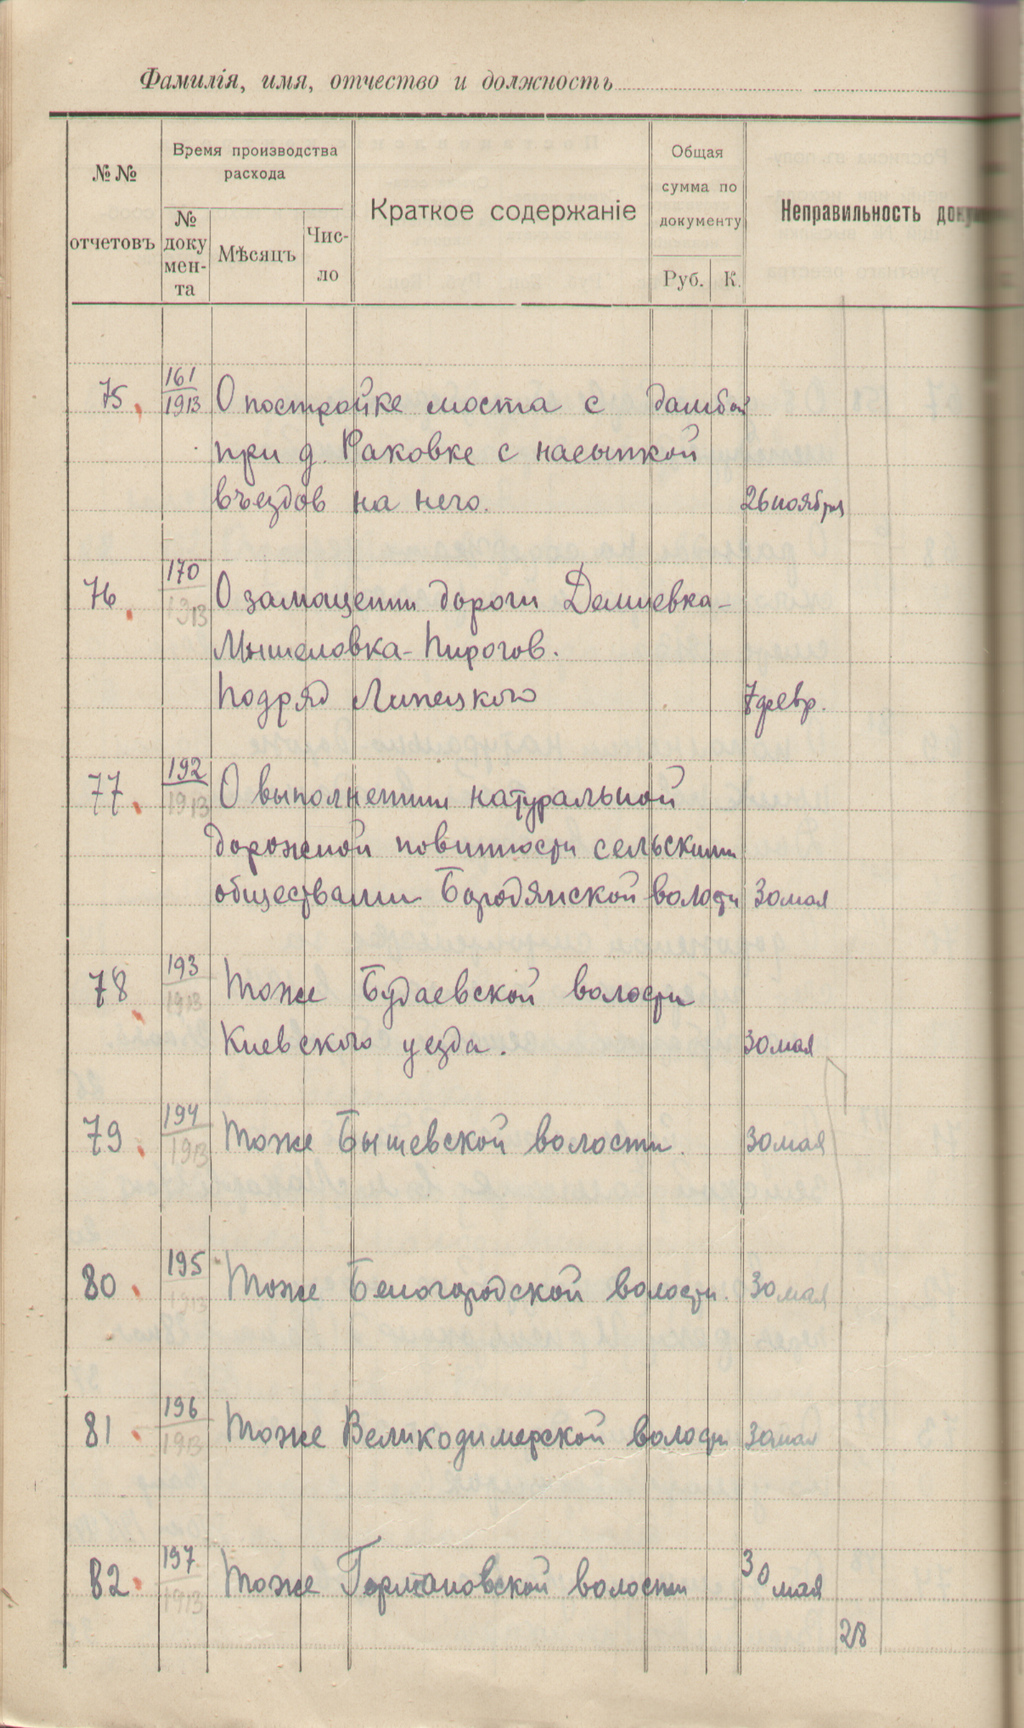 Фамилія, имя, отчество и должность
№№ отчетовъ
Время производства расхода
№ доку мен- та
Мѣсяцъ
Чис- ло
Краткое содержаніе
Общая сумма по документу
Руб. К.
Неправильность
75. 161/1913 О постройке моста с дамбой
при д. Раковке с насыпкой
въездов на него. 26 ноября
76. 170/1913 О замощении дороги Демиевка-
Мышеловка-Пирогов.
Подряд Липецкого 7 февр.
77. 192/1913 О выполнении натуральной
дорожной повинности сельскими
обществами Бородянской волости 30 мая
78. 193/1913 Тоже Будаевской волости
Киевского уезда. 30 мая
79. 194/1913 Тоже Бышевской волости. 30 мая
80. 195/1913 Тоже Белогородской волости. 30 мая
81. 196/1913 Тоже Великодимерской волости 30 мая
82. 197/1913 Тоже Германовской волости 30 мая
28